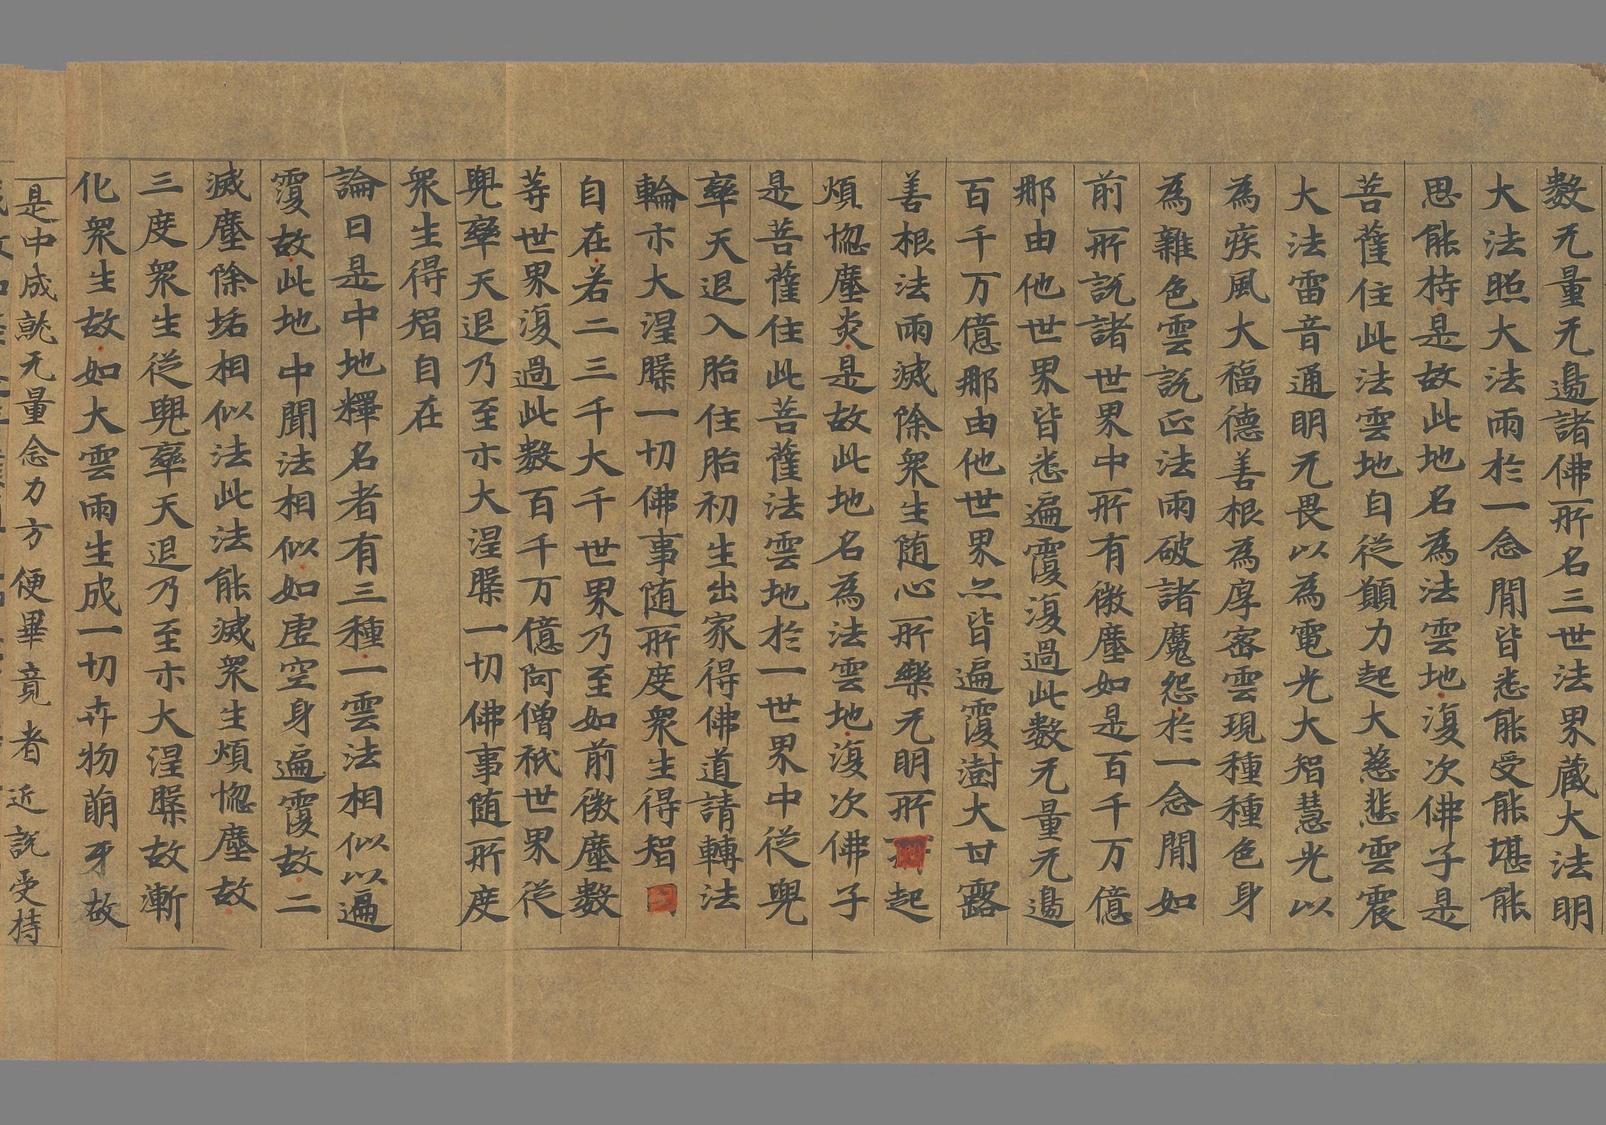 數无量无邊諸佛所名三世法界藏大法明
大法照大法雨於一念閒皆悉能受能堪能
思能持是故此地名為法雲地復次佛子是
菩薩住此法雲地自從願力起大慈悲雲震
大法雷音通明无畏以為電光大智慧光以
為疾風大福德善根為厚密雲現種種色身
為雜色雲說正法雨破諸魔怨於一念閒如
前所說諸世界中所有微塵如是百千万億
那由他世界皆悉遍覆復過此數无量无邊
百千万億那由他世界亦皆遍覆澍大甘露
善根法雨滅除衆生随心所樂无明所起
煩惱塵炎是故此地名為法雲地復次佛子
是菩薩住此菩薩法雲地於一世界中從兜
率天退入胎住胎初生出家得佛道請轉法
輪示大涅槃一切佛事随所度衆生得智
自在若二三千大千世界乃至如前微塵數
等世界復過此數百千万億阿僧祇世界從
兜率天退乃至示大涅槃一切佛事随所度
衆生得智自在
論曰是中地釋名者有三種一雲法相似以遍
覆故此地中聞法相似如虛空身遍覆故二
滅塵除垢相似法此法能滅衆生煩惱塵故
三度衆生從兜率天退乃至示大涅槃故漸
化衆生故如大雲雨生成一切卉物萌牙故
是中成就无量念力方便畢竟者近說受持